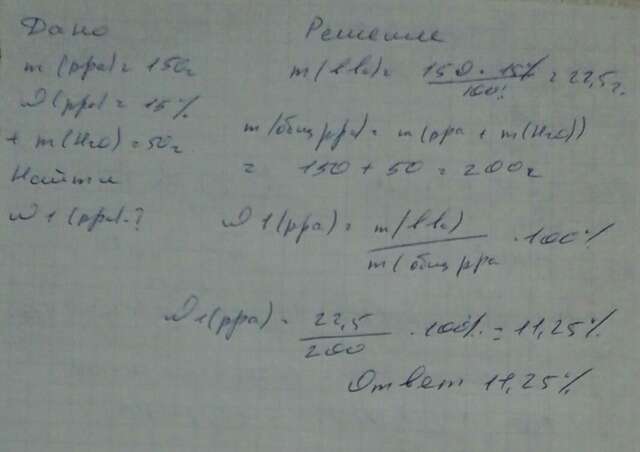 Дано
m(рра) = 150г
ω(рра) = 15%
+ m(H2O) = 50г
Найти
ω1(рра)-?
Решение
m(в-ва) = 150 · 15% / 100% = 22,5г.
m(общ рра) = m(рра + m(H2O))
= 150 + 50 = 200г
ω1(рра) = m(в-ва) / m(общ рра · 100%
ω1(рра) = 22,5 / 200 · 100% = 11,25%
Ответ 11,25%